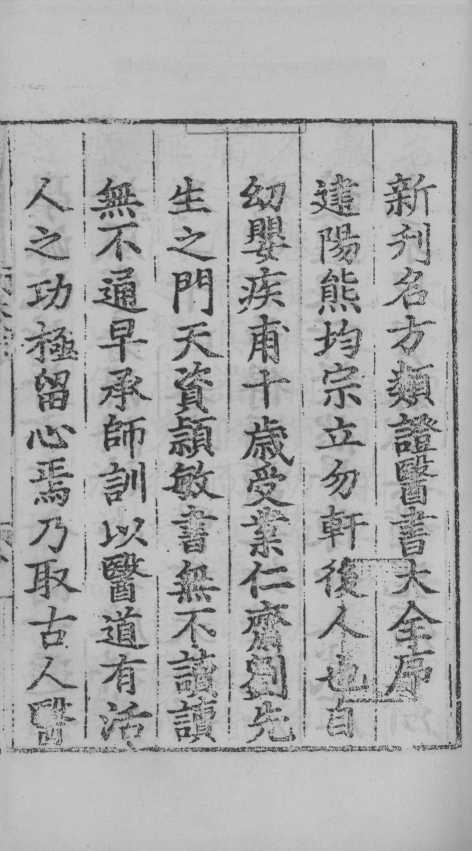 新刋名方類證醫書大全序
建陽熊均宗立勿軒後人也自
幼嬰疾甫十歳受業仁齋劉先
生之門天資頴敏書無不讀讀
無不通早承師訓以醫道有活
人之功極留心焉乃取古人醫